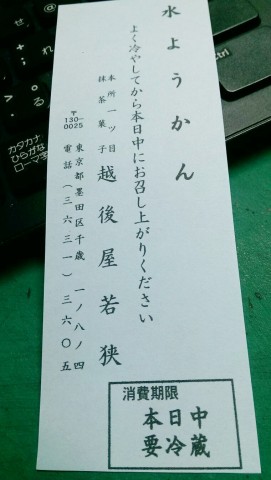 水ようかん
よく冷やしてから本日中にお召し上がりください
本所一ッ目
抹茶菓子
越後屋若狭
〒
130-
0025
東京都墨田区千歳一ノ八ノ四
電話(三六三一)三六〇五
消費期限
本日中
要冷蔵
カタカナ
ひらがな
ローマ字
Ctrl